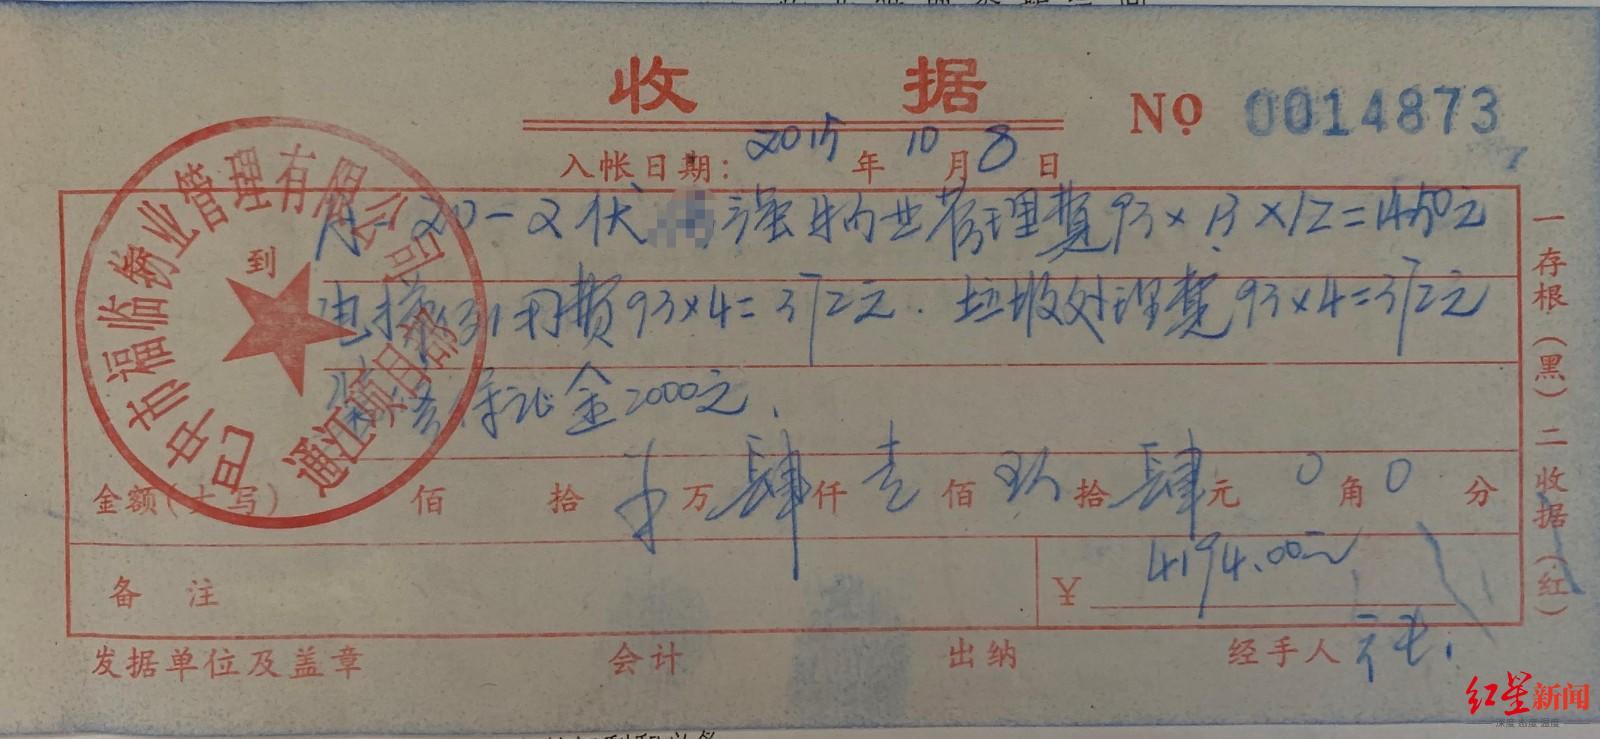 收 据
No 0014873
入帐日期: 2015 年 10 月 8 日
20-2 伏 强物业管理费93×1.3×12=1450元
引用费93×4=372元. 垃圾处理费93×4=372元
保证金2000元
金额(大写) 佰 拾 万 肆 仟 壹 佰 玖 拾 肆 元 0 角 0 分
备 注 ¥ 4194.00
发据单位及盖章 会计 出纳 经手人
一存根(黑)二收据(红)
巴中市福临物业管理有限公司
通江项目部
到
红星新闻
深度 态度 温度